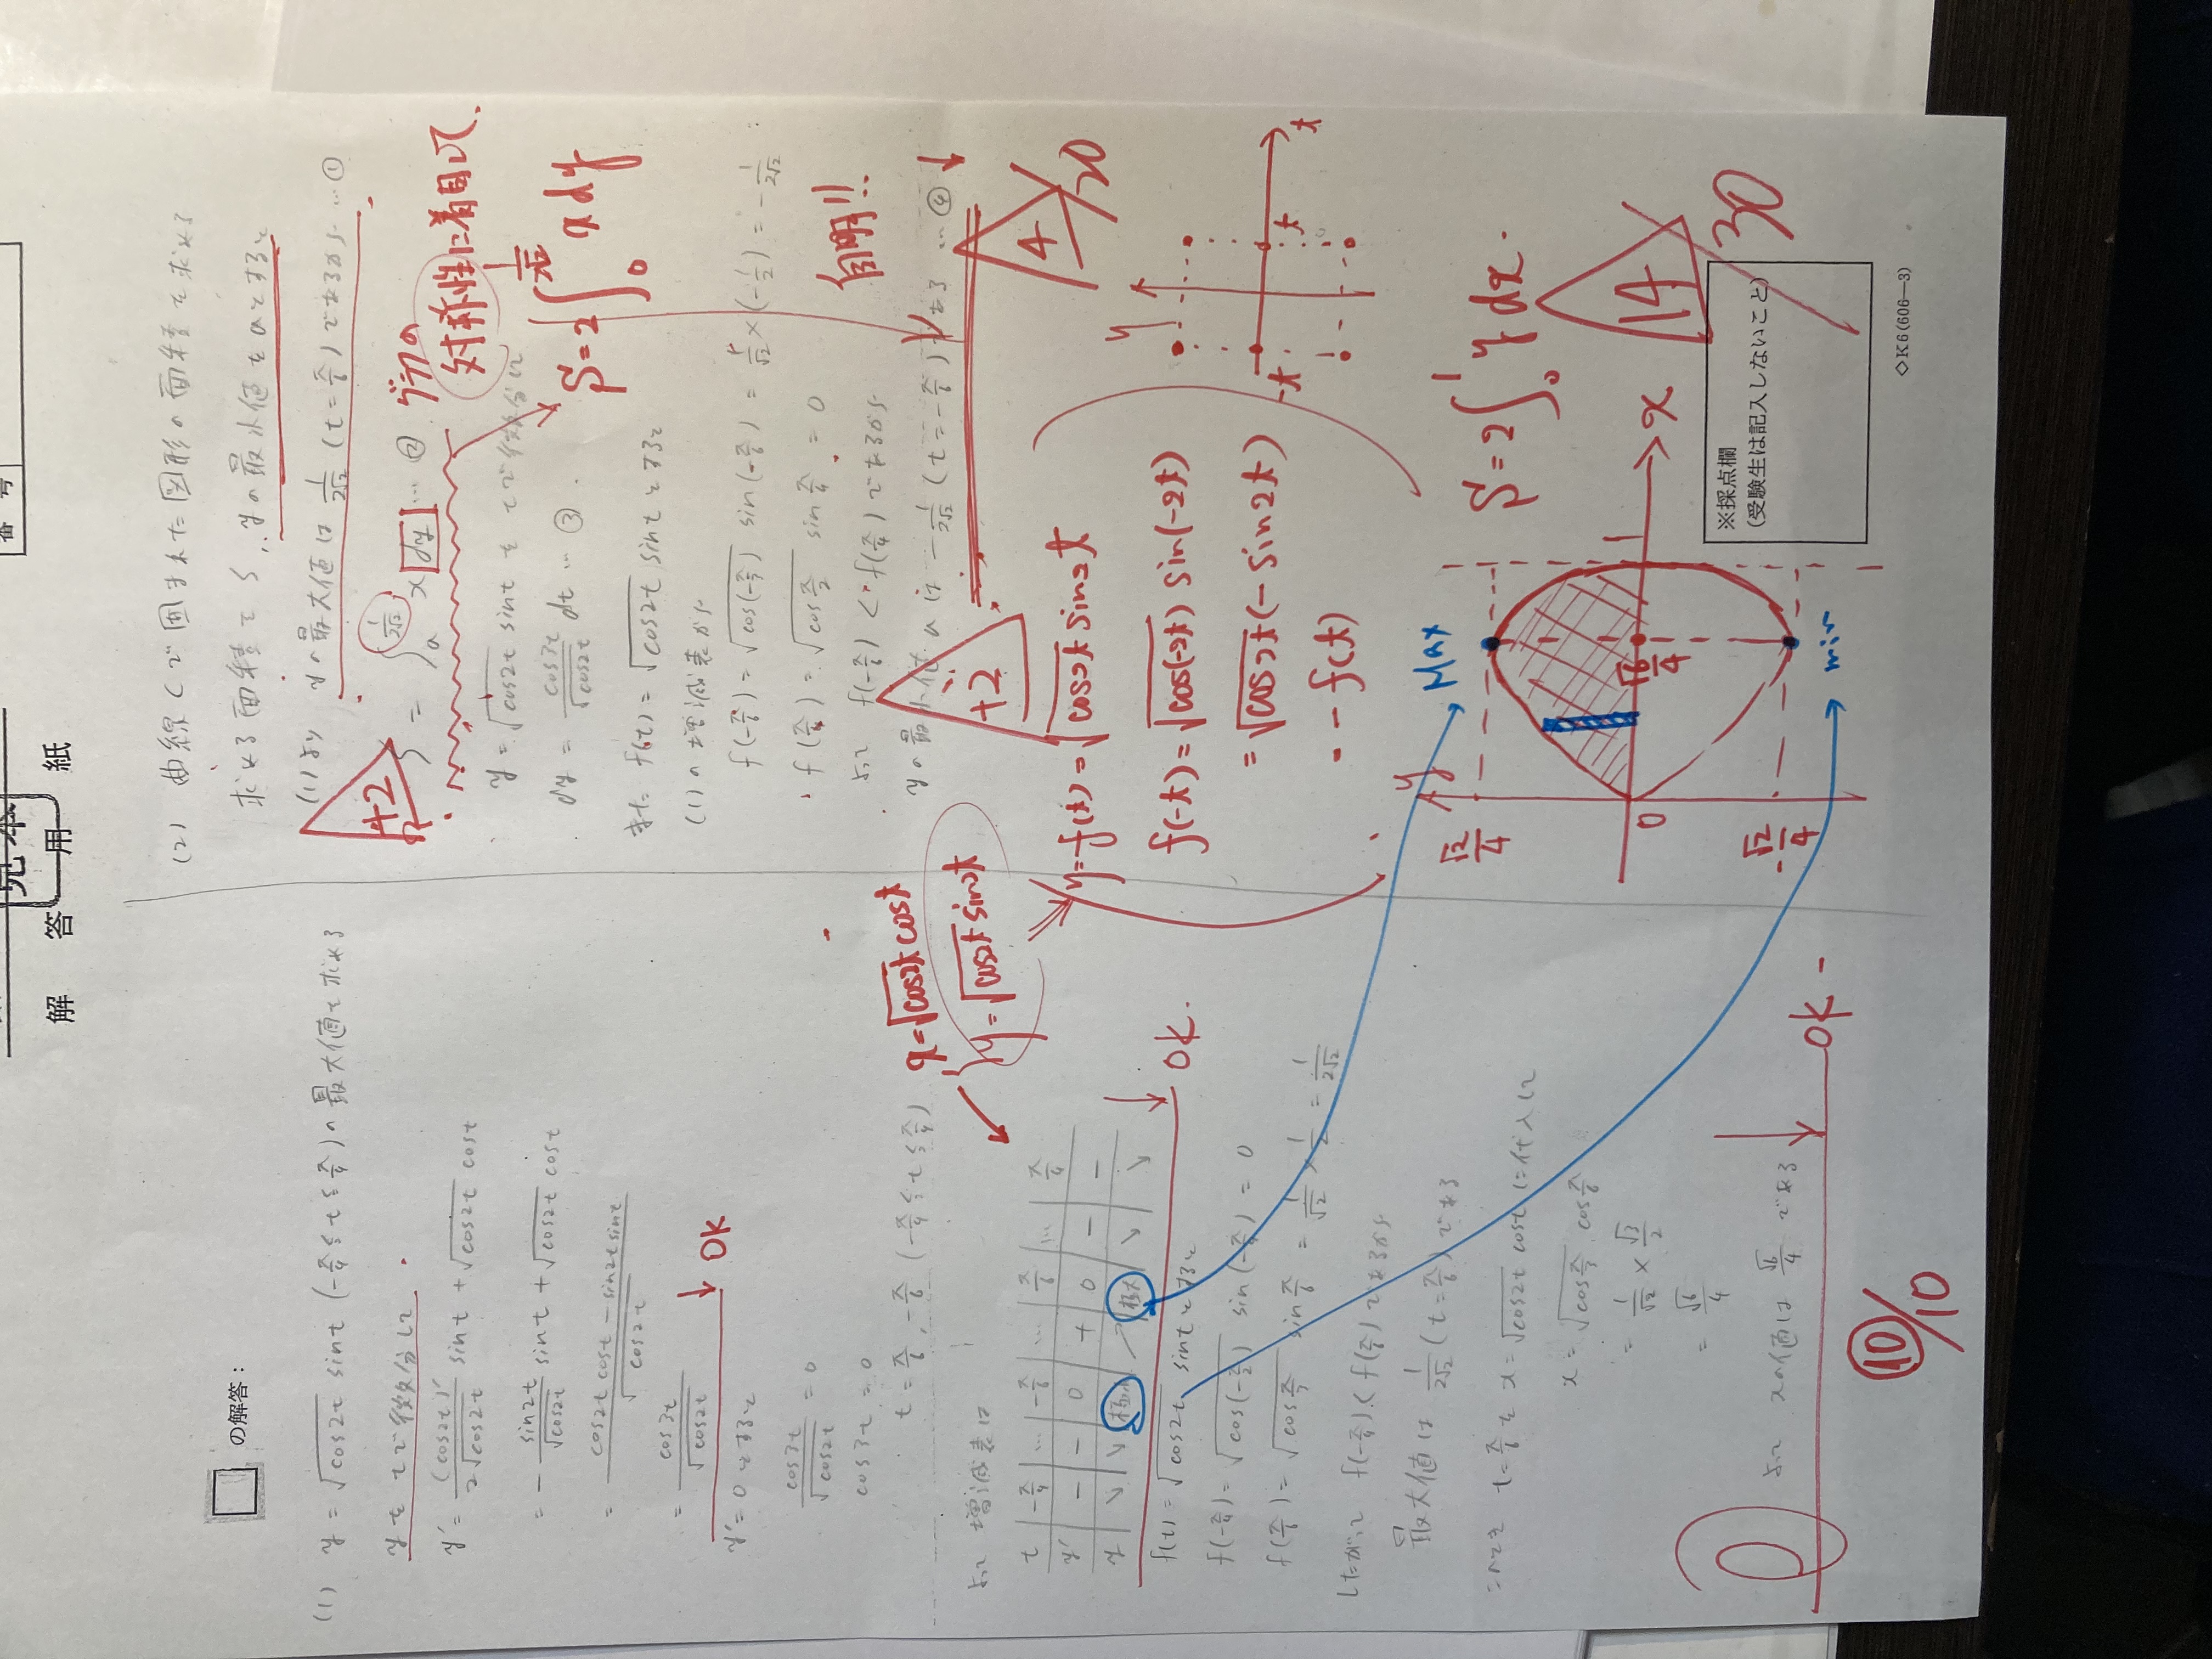 番号
解答用紙
の解答:
(1) y = √cos2t sint (-π/4 ≦ t ≦ π/4) の最大値を求める
yをtで微分して
y' = (cos2t)'/2√cos2t sint + √cos2t cost
= - sin2t/√cos2t sint + √cos2t cost
= cos2t cost - sin2t sint/√cos2t
= cos3t/√cos2t
OK
y' = 0 とすると
cos3t/√cos2t = 0
cos3t = 0
t = π/6, -π/6 (-π/4 ≦ t ≦ π/4)
x = √cos2t cost
y = √cos2t sint
よって増減表は
t -π/4 … -π/6 … π/6 … π/4
y' - - 0 + 0 - -
y ↘ ↘ 極小 ↗ 極大 ↘ ↘
OK.
f(t) = √cos2t sint とすると
f(-π/4) = √cos(-π/2) sin(-π/4) = 0
f(π/6) = √cos π/3 sin π/6 = 1/√2 × 1/2 = 1/2√2
したがって f(-π/4) < f(π/6) であるから
最大値は 1/2√2 (t = π/6) である
t = π/6 を x = √cos2t cost に代入して
x = √cos π/3 cos π/6
= 1/√2 × √3/2
= √6/4
よって xの値は √6/4 である
OK
10/10
(2) 曲線Cで囲まれた図形の面積を求める
求める面積を S, yの最小値を aとすると
(1)より yの最大値は 1/2√2 (t = π/6) であるから … ①
+2
S = ∫a 1/2√2 x dy … ②
グラフの
対称性に着目して.
y = √cos2t sint をtで微分して
dy = cos3t/√cos2t dt … ③
また f(t) = √cos2t sint とすると
(1)の増減表から
f(-π/6) = √cos(-π/3) sin(-π/6) = 1/√2 × (-1/2) = -1/2√2
f(π/4) = √cos π/2 sin π/4 = 0
よって f(-π/6) < f(π/4) であるから
yの最小値 a は -1/2√2 (t = -π/6) である … ④
自明!!
+2
4/20
y = f(t) = √cos2t sin2t
f(-t) = √cos(-2t) sin(-2t)
= √cos2t (-sin2t)
= - f(t)
y
t
-t
t
Max
min
y
x
0
1
√2/4
-√2/4
√6/4
S = 2∫0 1 y dx.
14/30
※採点欄
(受験生は記入しないこと)
◇K6(606—3)